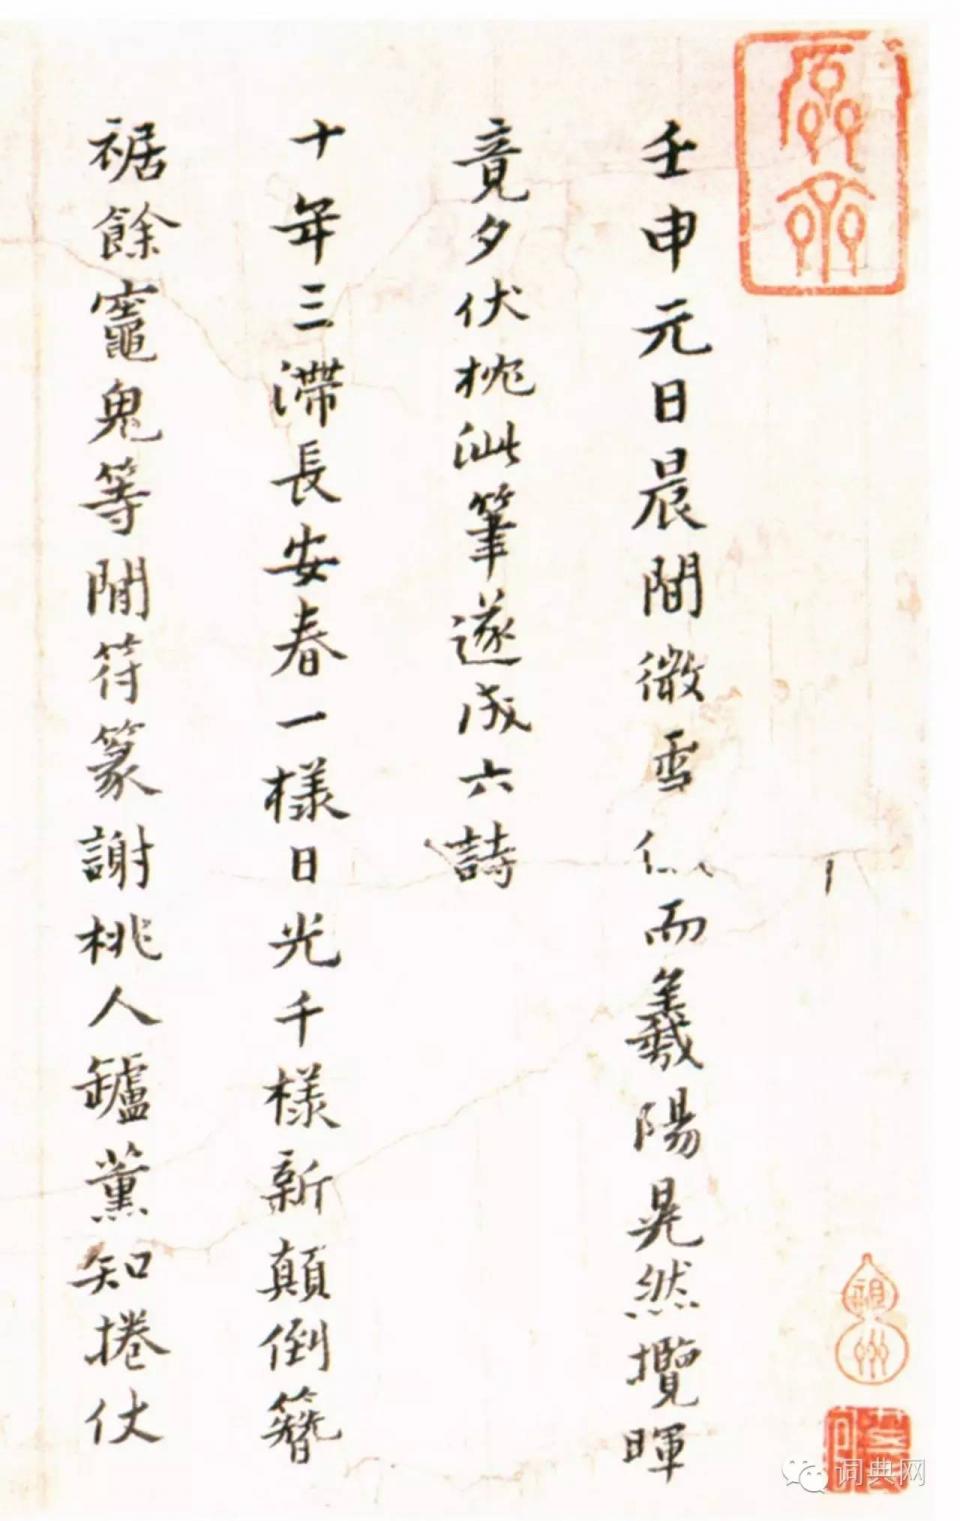 壬申元日晨間微雪俄而羲陽晃然攬暉
竟夕伏枕泚筆遂成六詩
十年三滯長安春一樣日光千樣新顛倒簪
裾餘竈鬼等閒符篆謝桃人罏薰知捲仗
词典网